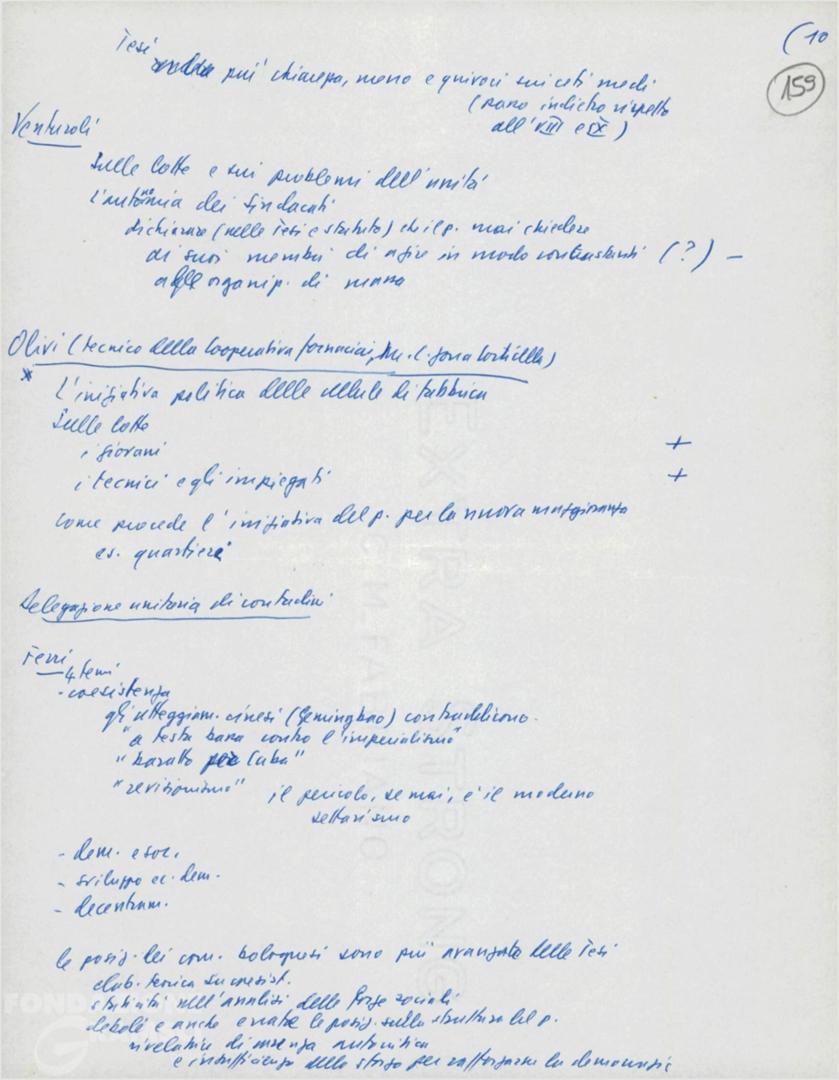 (10
159
Tesi
più chiarezza, meno equivoci sui ceti medi
(passo indietro rispetto
all'VIII e IX)
Venturoli
Sulle lotte e sui problemi dell'unità
L'autonomia dei sindacati
dichiarare (nelle Tesi e statuto) che il p. mai chiedere
di suoi membri di agire in modo contrastanti (?) –
alle organizz. di massa
Olivi (tecnico della Cooperativa fornaciai, zona Corticella)
* L'iniziativa politica delle cellule di fabbrica
Sulle lotte
i giovani +
i tecnici e gli impiegati +
Come procede l'iniziativa del p. per la nuova maggioranza
es. quartiere
Delegazione unitaria di contadini
Ferri
4 temi
- coesistenza
gli atteggiam. cinesi (Gemingbao) contraddicono.
"a testa bassa contro l'imperialismo"
"baratto per Cuba"
"revisionismo" il pericolo, se mai, è il moderno
settarismo
- dem. e soc.
- sviluppo ec. dem.
- decentram.
le posiz. dei com. bolognesi sono più avanzate delle Tesi
elab. teorica su coesist.
staticità nell'analisi delle forze sociali
deboli e anche errate le posiz. sulla struttura del p.
rivelatrice di assenza autocritica
e insufficienza dello sforzo per rafforzare la democrazia
EXTRA STRONG
G.M. FABRIANO
FONDAZIONE